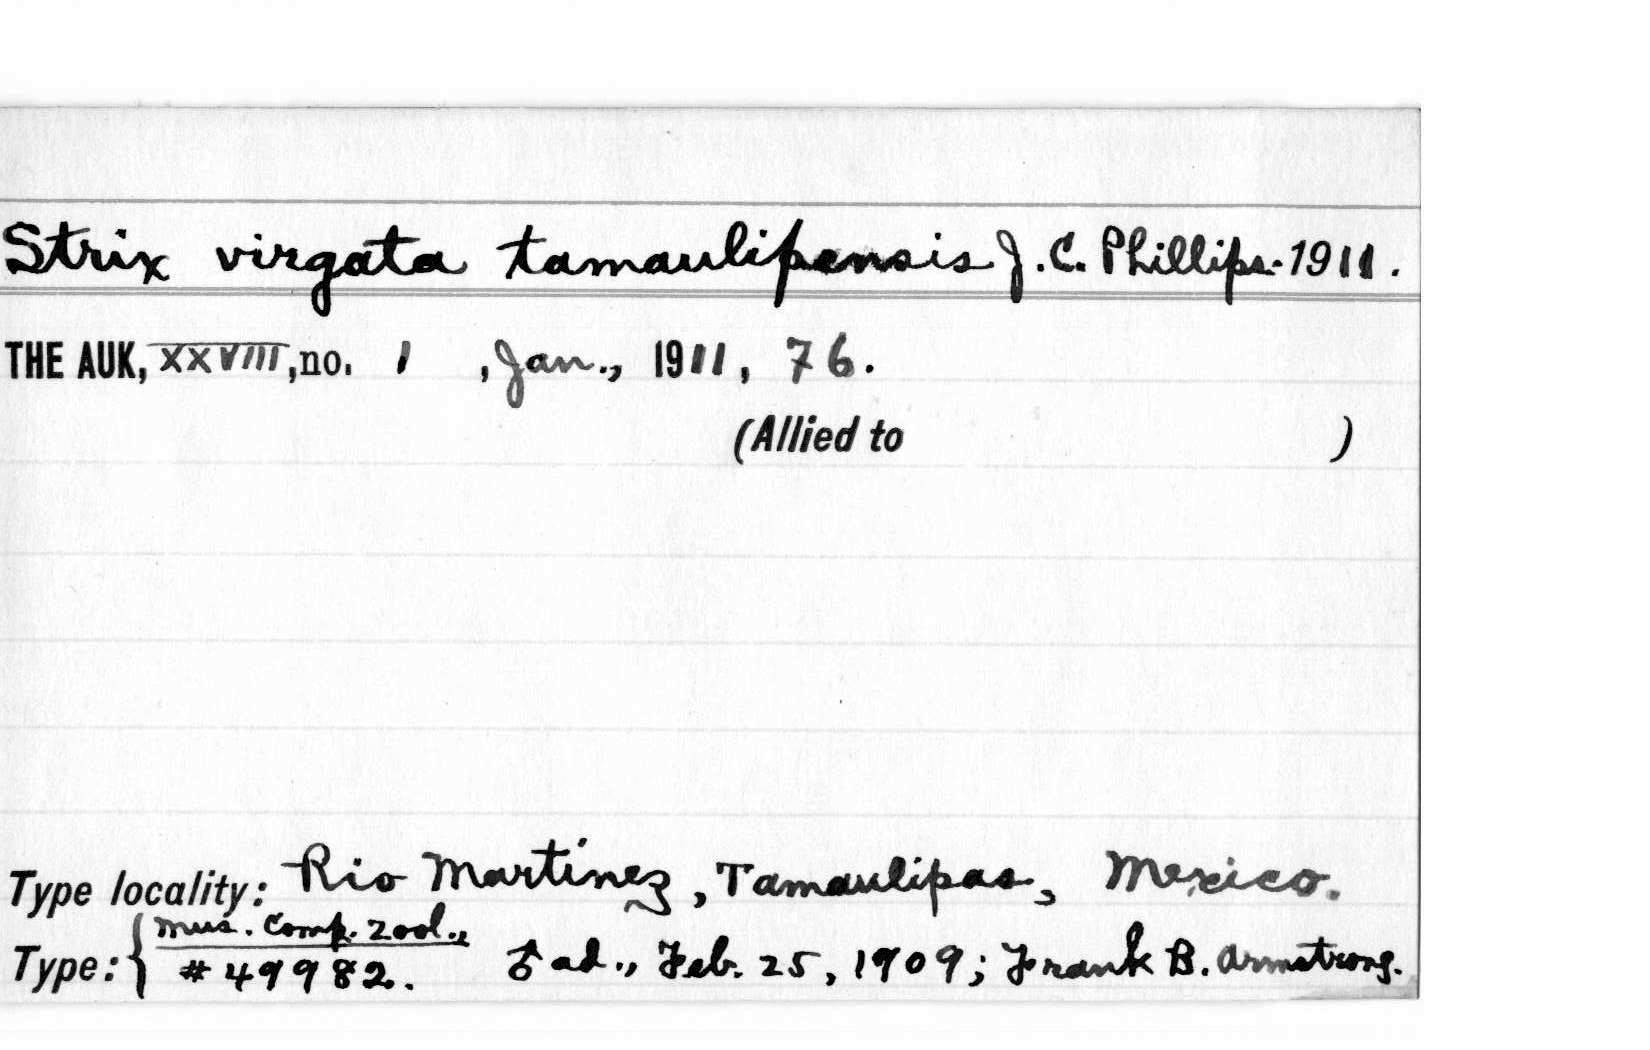 Strix virgata tamaulipensis J. C. Phillips-1911.
THE AUK, XXVIII, no. 1, Jan., 1911, 76.
(Allied to )
Type locality: Rio Martínez, Tamaulipas, Mexico.
Type: { Mus. Comp. Zool.,
#49982. ♂ ad., Feb. 25, 1909; Frank B. Armstrong.